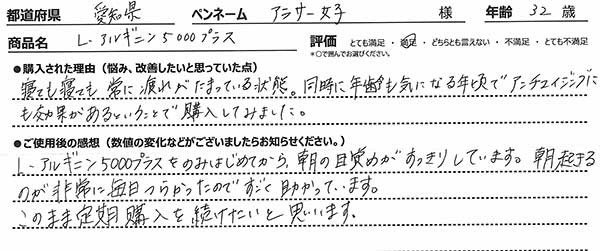 都道府県 愛知県 ペンネーム アラサー女子 様 年齢 32 歳
商品名 L-アルギニン5000プラス 評価 とても満足・満足・どちらとも言えない・不満足・とても不満足
※○で囲んでお選びください。
●購入された理由（悩み、改善したいと思っていた点）
寝ても寝ても常に疲れがたまっている状態。同時に年齢も気になる年頃でアンチエイジングに
も効果があるということで購入してみました。
●ご使用後の感想（数値の変化などがございましたらお知らせください。）
L-アルギニン5000プラスをのみはじめてから、朝の目覚めがすっきりしています。朝起きる
のが非常に毎日つらかったのですごく助かっています。
このまま定期購入を続けたいと思います。